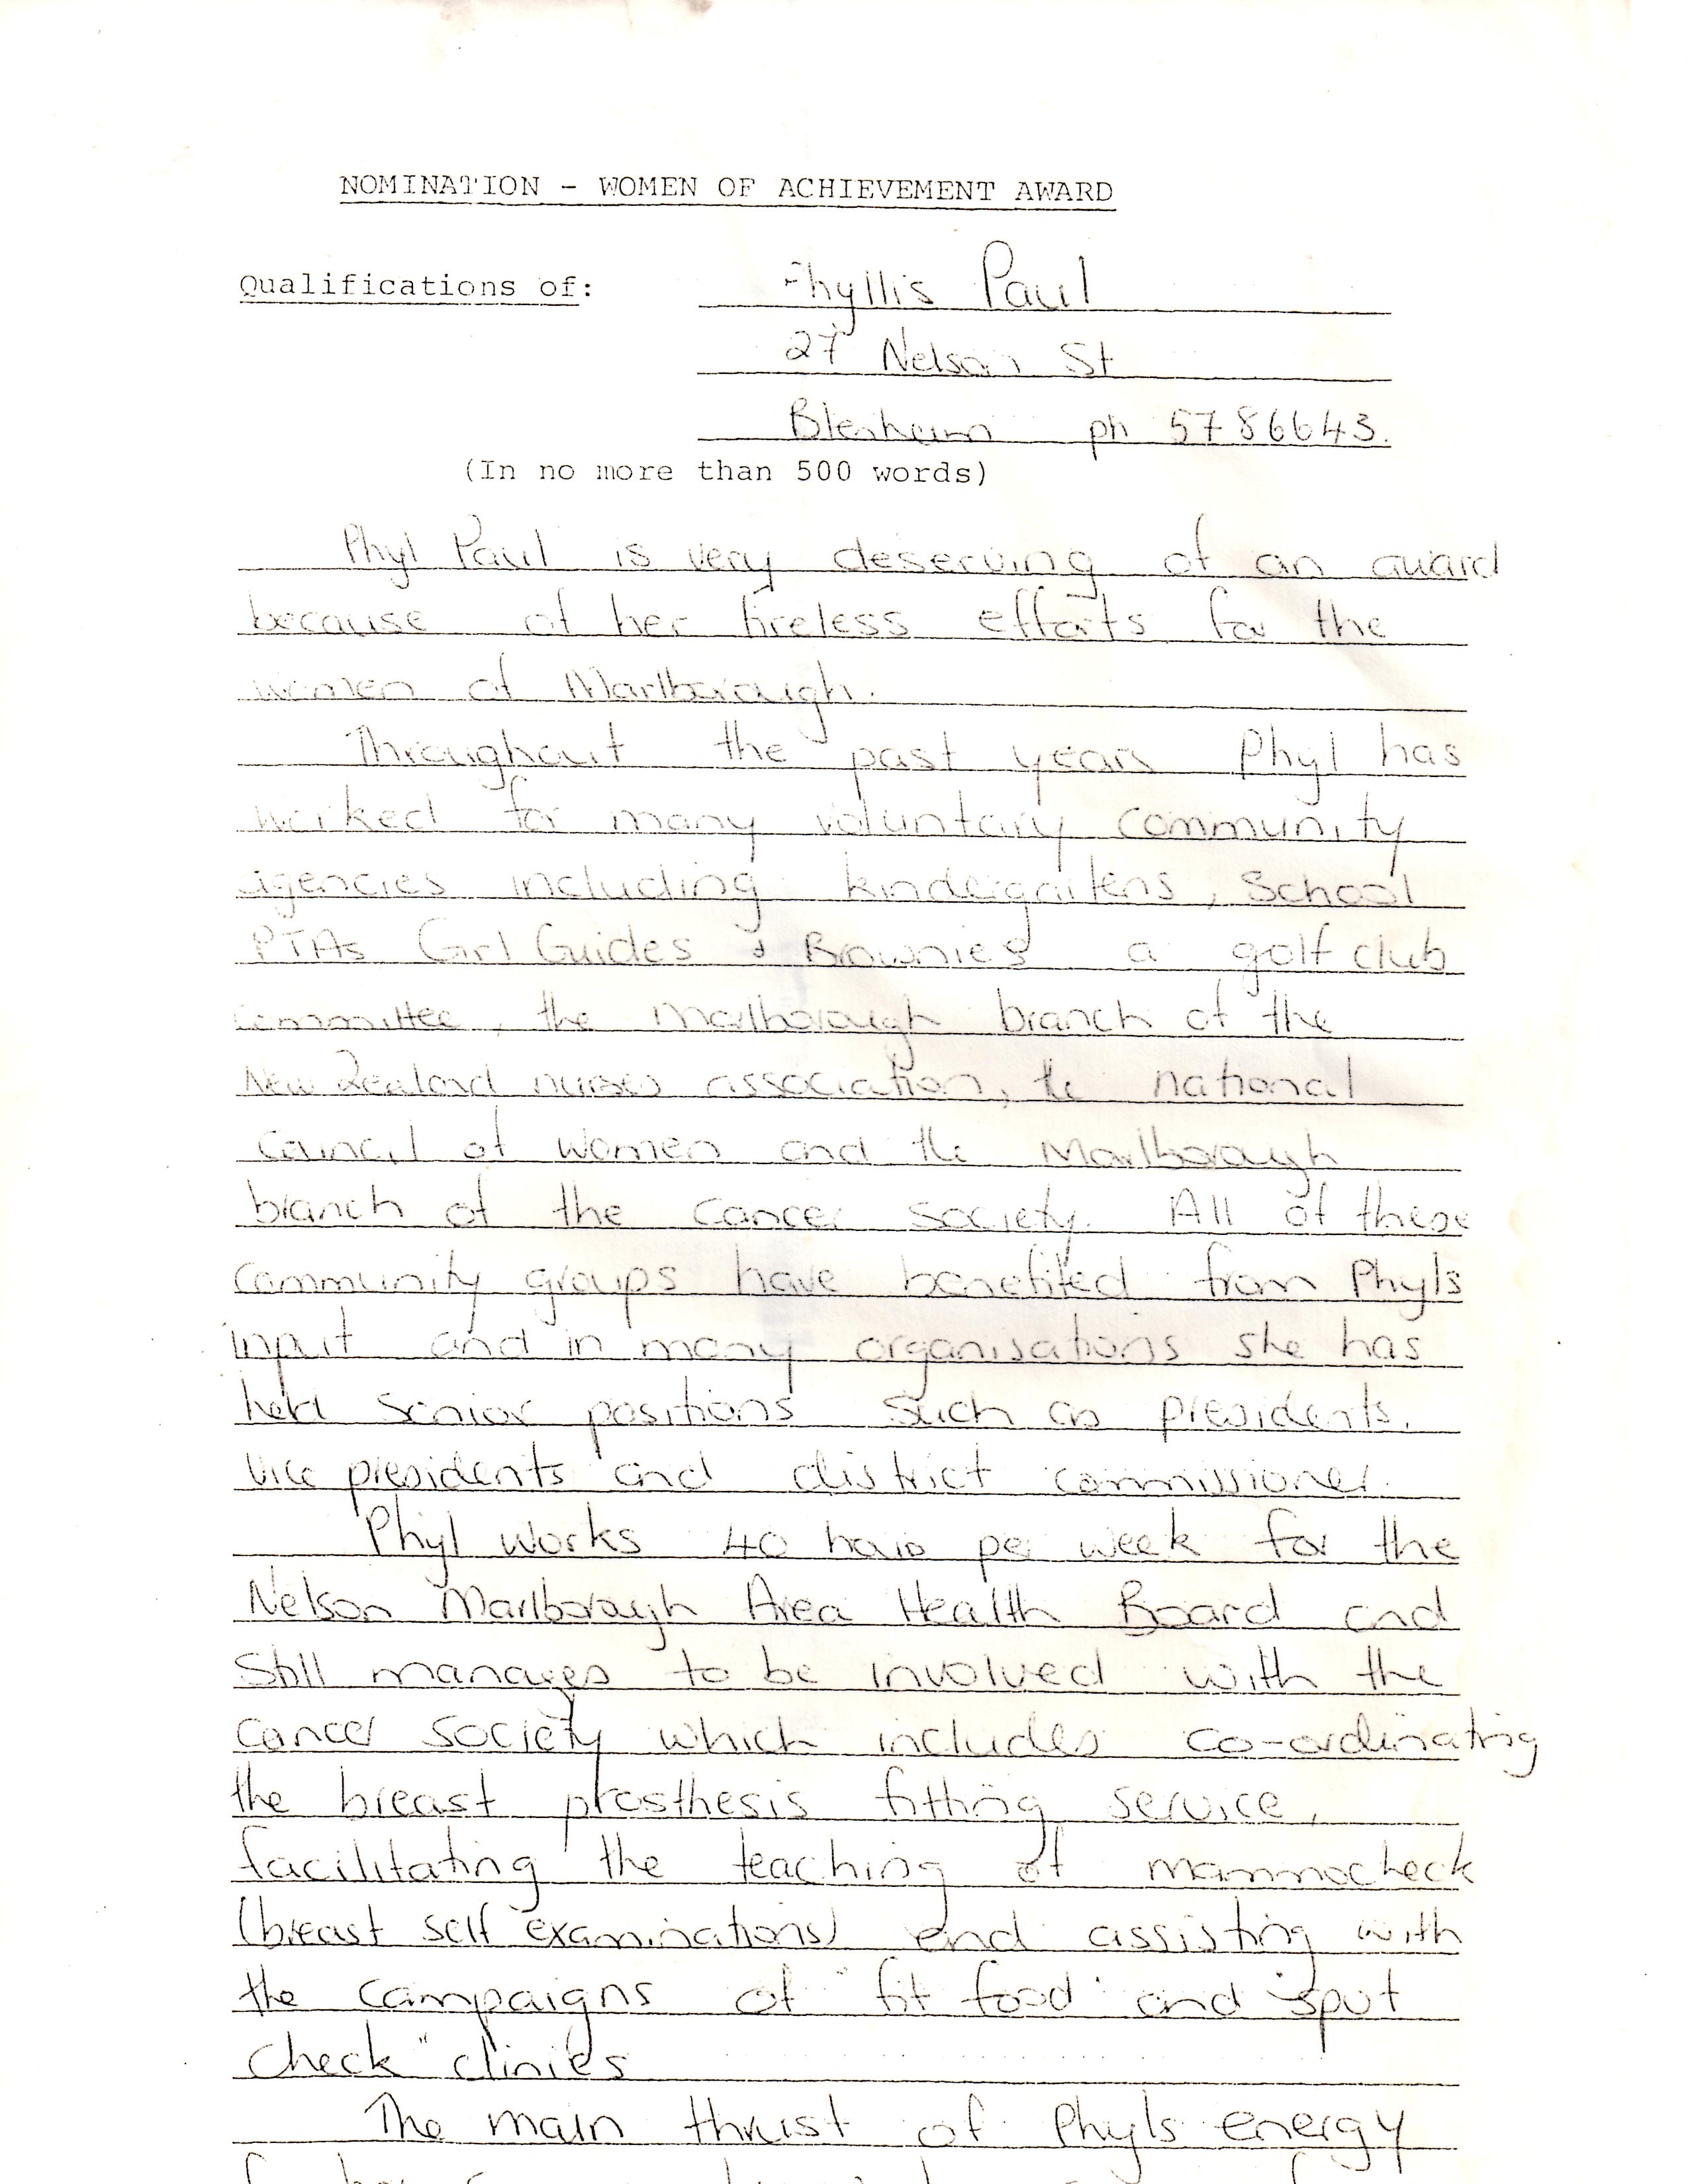 NOMINATION - WOMEN OF ACHIEVEMENT AWARD
Qualifications of: Phyllis Paul
27 Nelson St
Blenheim ph 5786643.
(In no more than 500 words)
Phyl Paul is very deserving of an award
because of her tireless efforts for the
women of Marlborough.
Throughout the past years Phyl has
worked for many voluntary community
agencies including kindergartens, School
PTAs Girl Guides & Brownies a golf club
committee, the Marlborough branch of the
New Zealand nurses association, the national
Council of women and the Marlborough
branch of the cancer society. All of these
community groups have benefited from Phyls
input and in many organisations she has
held senior positions such as presidents,
vice presidents and district commissioner.
Phyl works 40 hours per week for the
Nelson Marlborough Area Health Board and
Still manages to be involved with the
cancer society which includes co-ordinating
the breast prosthesis fitting service,
facilitating the teaching of mammocheck
(breast self examinations) and assisting with
the campaigns of "fit food" and "spot
check" clinics
The main thrust of Phyls energy